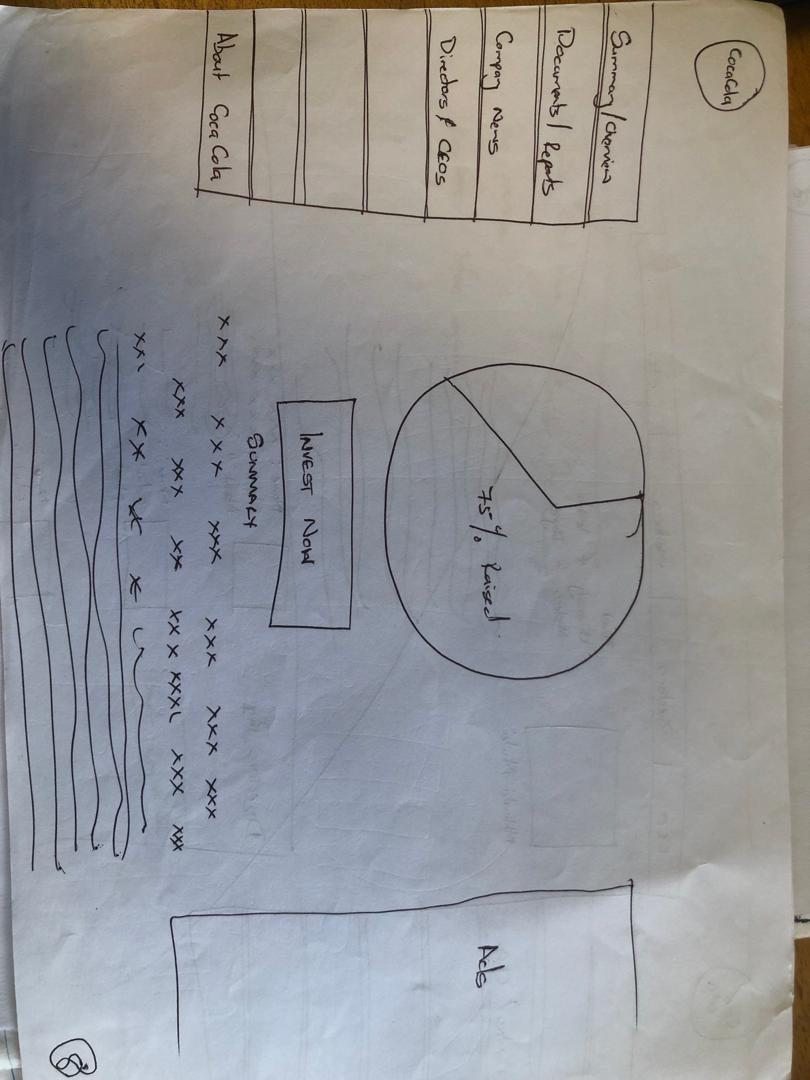 CocaCola
Summary/Overview
Documents/Reports
Company News
Directors & CEOs
About CocaCola
75% Raised
INVEST NOW
SUMMARY
xxx xxx xxx xxx xxx xxx
xxx xxx xx xxx xxxx xxx xxx
xxx xx x x
Ads
8